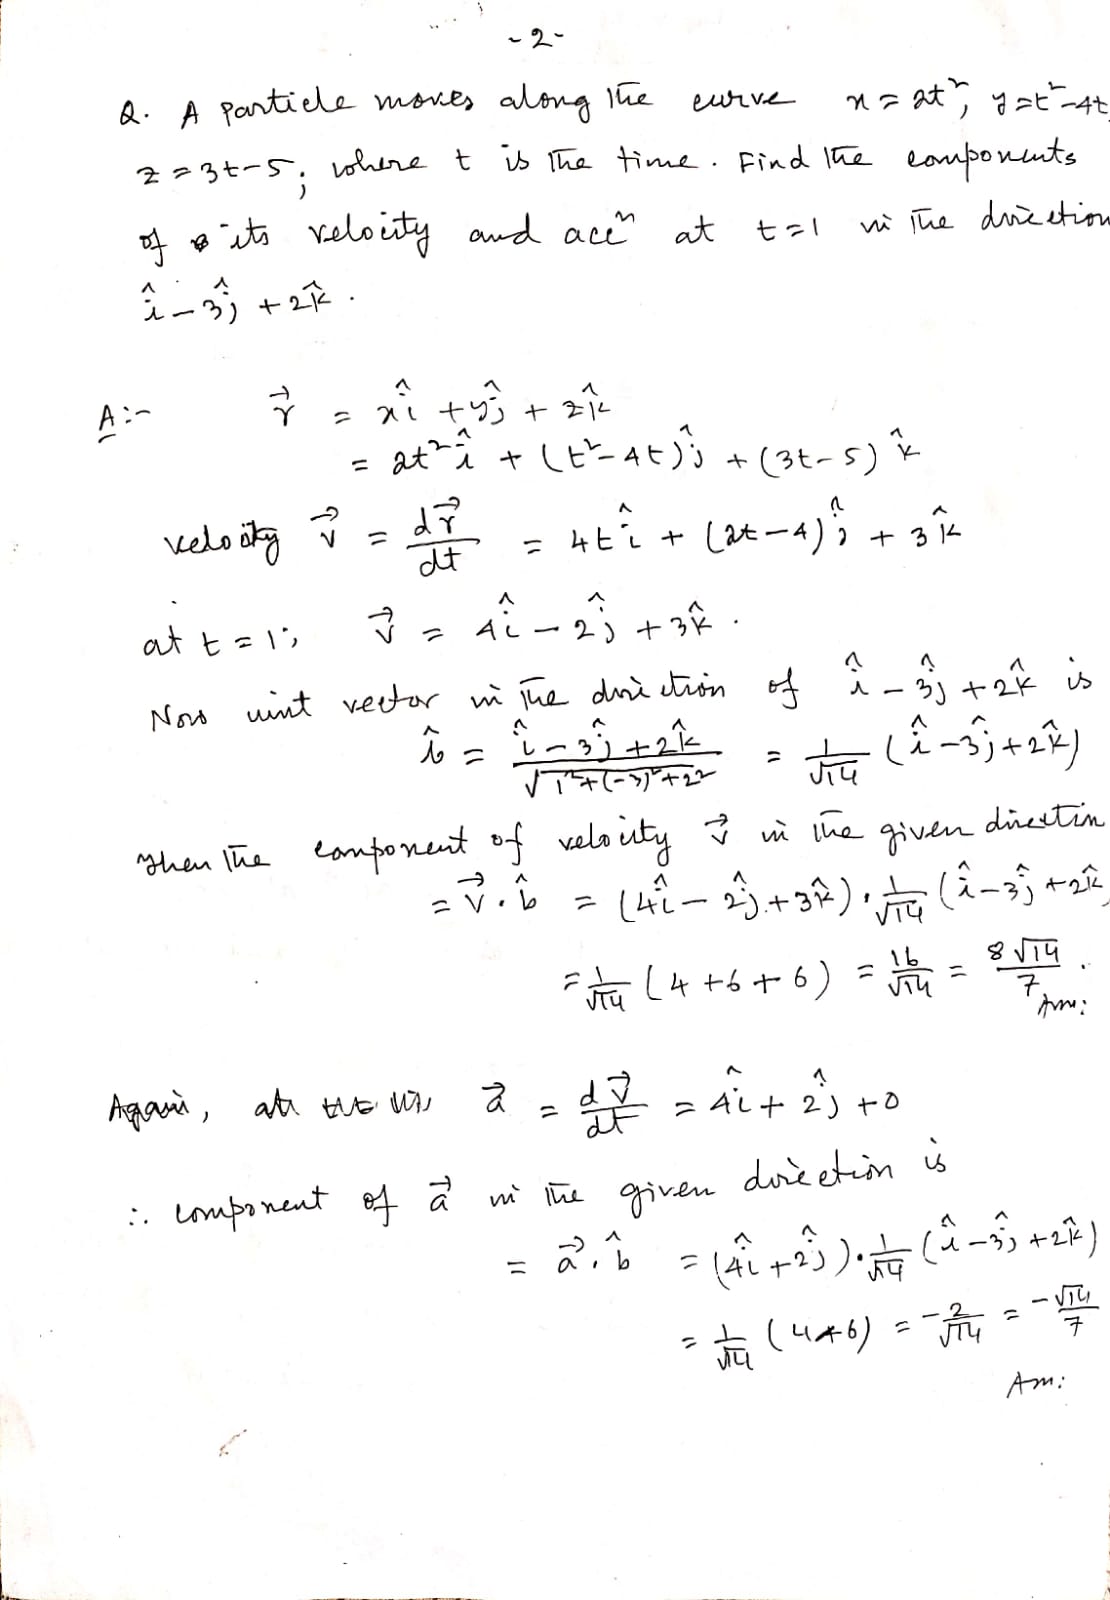 -2-
Q. A particle moves along the curve x = 2t², y = t²-4t,
z = 3t-5; where t is the time. Find the components
of its velocity and accⁿ at t=1 in the direction
î - 3ĵ + 2k̂.
A:- r⃗ = xî + yĵ + zk̂
= 2t²î + (t²-4t)ĵ + (3t-5)k̂
velocity v⃗ = dr⃗/dt = 4tî + (2t-4)ĵ + 3k̂
at t=1; v⃗ = 4î - 2ĵ + 3k̂.
Now uint vector in the direction of î - 3ĵ + 2k̂ is
b̂ = (î - 3ĵ + 2k̂)/√(1²+(-3)²+2²) = 1/√14 (î - 3ĵ + 2k̂)
Then the component of velocity v⃗ in the given direction
= v⃗ . b̂ = (4î - 2ĵ + 3k̂) . 1/√14 (î - 3ĵ + 2k̂)
= 1/√14 (4+6+6) = 16/√14 = 8√14/7.
Ans:
Again, a⃗ = dv⃗/dt = 4î + 2ĵ + 0
∴ component of a⃗ in the given direction is
= a⃗ . b̂ = (4î + 2ĵ) . 1/√14 (î - 3ĵ + 2k̂)
= 1/√14 (4-6) = -2/√14 = -√14/7
Ans: